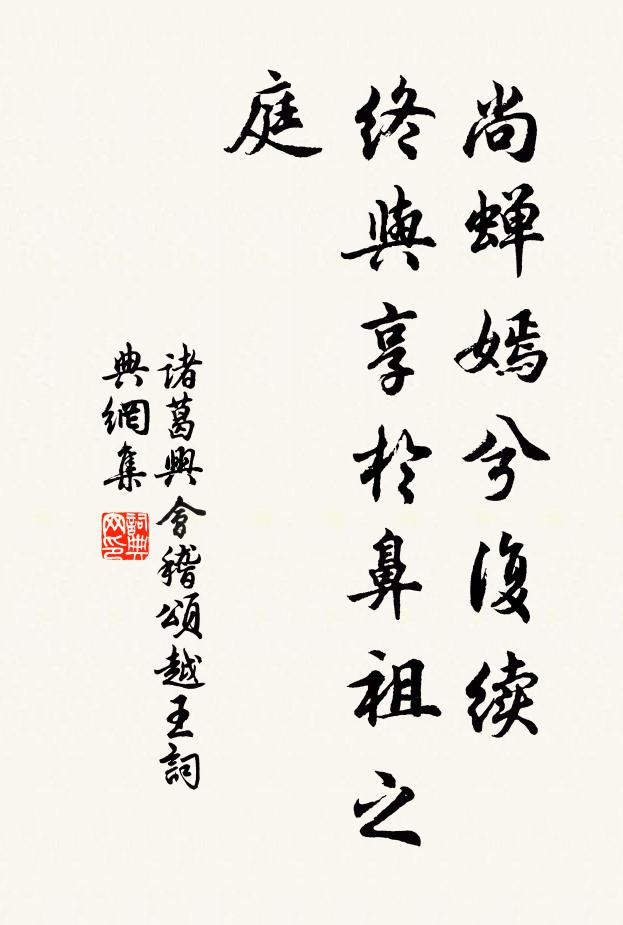 尚蝉嫣兮復续
终與享於鼻祖之
庭
诸葛興會稽頌越王詞
典網集
詞典网印